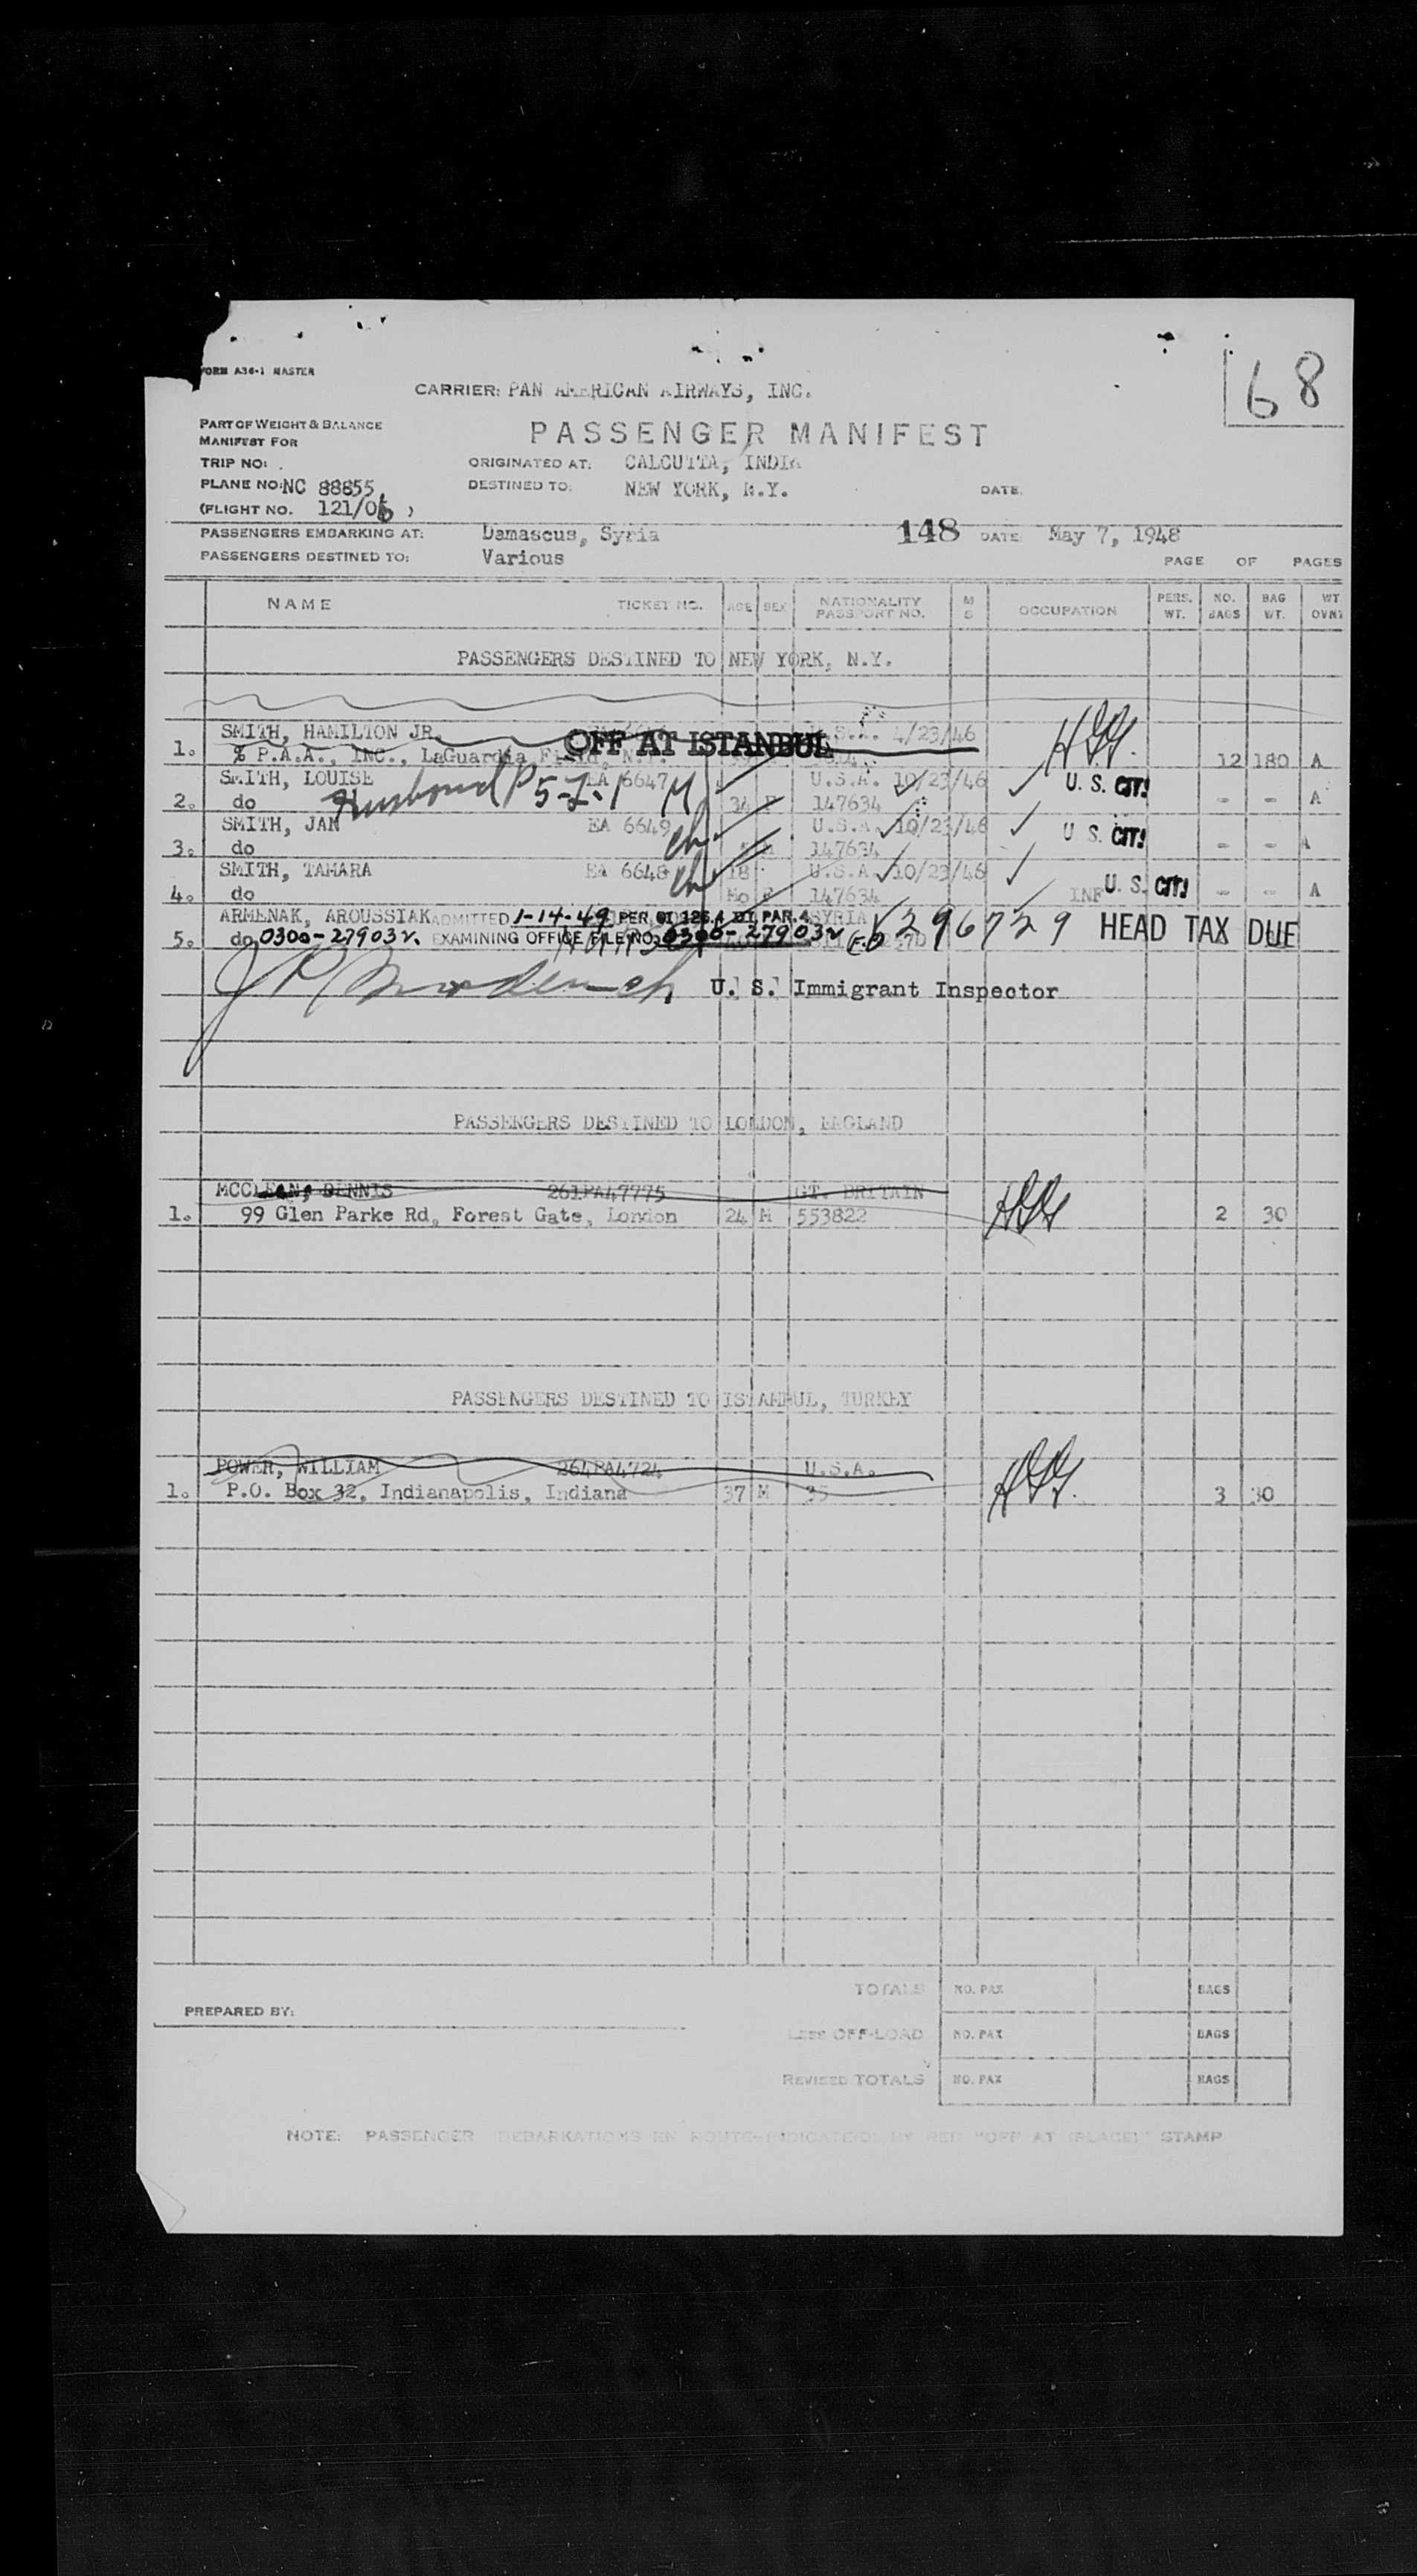 FORM A36-1 MASTER
68
CARRIER: PAN AMERICAN AIRWAYS, INC.
PART OF WEIGHT & BALANCE
MANIFEST FOR
PASSENGER MANIFEST
TRIP NO:
ORIGINATED AT: CALCUTTA, INDIA
PLANE NO: NC 88855
DESTINED TO: NEW YORK, N.Y.
DATE
(FLIGHT NO. 121/06 )
PASSENGERS EMBARKING AT: Damascus, Syria 148 DATE May 7, 1948
PASSENGERS DESTINED TO: Various PAGE OF PAGES
NAME TICKET NO. AGE SEX NATIONALITY PASSPORT NO. M S OCCUPATION PERS. WT. NO. BAGS BAG WT. WT OVNT
PASSENGERS DESTINED TO NEW YORK, N.Y.
SMITH, HAMILTON JR. U.S.A. 4/23/46
1. % P.A.A., INC., LaGuardia Field, N.Y. OFF AT ISTANBUL 12 180 A
SMITH, LOUISE EA 6647 M U.S.A. 10/23/46 U. S. CIT!
2. do Husband 5-2-1 34 F 147634 - - A
SMITH, JAN EA 6649 ch U.S.A. 10/23/46 U S. CIT!
3. do 147634 - - A
SMITH, TAMARA EA 6648 ch 18 U.S.A. 10/23/46
4. do Mo F 147634 INF U. S. CIT! - - A
ARMENAK, AROUSSIAK ADMITTED 1-14-49 PER OI 125.4 BY PAR. 4 SYRIA V296729 HEAD TAX DUE
5. do 0300-27903 EXAMINING OFFICE FILE NO. 0300-27903
U. S. Immigrant Inspector
PASSENGERS DESTINED TO LONDON, ENGLAND
MCCLEAN, DENNIS 261PA47775 GT. BRITAIN
1. 99 Glen Parke Rd, Forest Gate, London 24 M 553822 2 30
PASSENGERS DESTINED TO ISTANBUL, TURKEY
POWER, WILLIAM 264PA4724 U.S.A.
1. P.O. Box 32, Indianapolis, Indiana 37 M 35 3 30
TOTALS NO. PAX BAGS
PREPARED BY:
LESS OFF-LOAD NO. PAX BAGS
REVISED TOTALS NO. PAX BAGS
NOTE: PASSENGER DEBARKATIONS EN ROUTE-INDICATED BY RED "OFF AT (PLACE)" STAMP